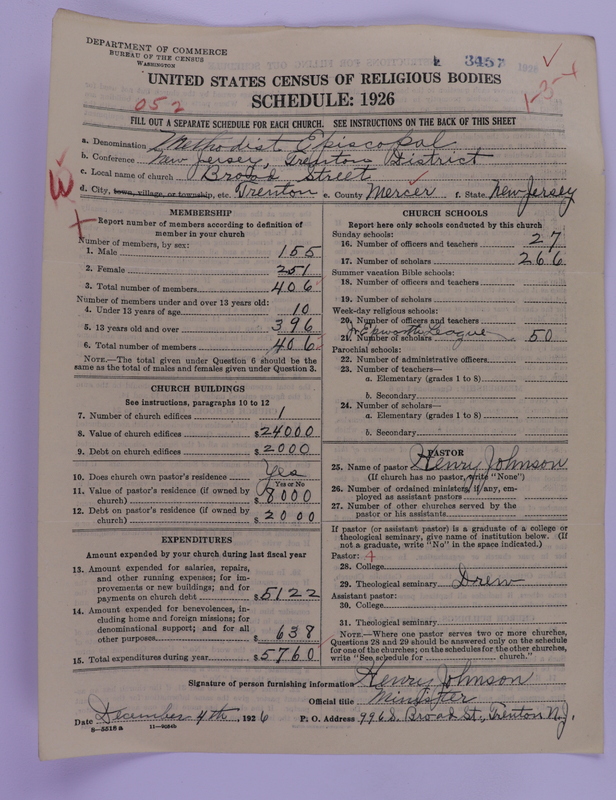 DEPARTMENT OF COMMERCE
BUREAU OF THE CENSUS
WASHINGTON
3457 1928
UNITED STATES CENSUS OF RELIGIOUS BODIES
1-3-4
052
SCHEDULE: 1926
FILL OUT A SEPARATE SCHEDULE FOR EACH CHURCH. SEE INSTRUCTIONS ON THE BACK OF THIS SHEET
a. Denomination Methodist Episcopal
b. Conference New Jersey, Trenton District
c. Local name of church Broad Street
d. City, town, village, or township, etc. Trenton e. County Mercer f. State New Jersey
W
MEMBERSHIP
Report number of members according to definition of
member in your church
Number of members, by sex:
1. Male 155
2. Female 251
3. Total number of members 406
Number of members under and over 13 years old:
4. Under 13 years of age 10
5. 13 years old and over 396
6. Total number of members 406
NOTE.—The total given under Question 6 should be the
same as the total of males and females given under Question 3.
CHURCH BUILDINGS
See instructions, paragraphs 10 to 12
7. Number of church edifices 1
8. Value of church edifices $24000
9. Debt on church edifices $2000
10. Does church own pastor's residence Yes
Yes or No
11. Value of pastor's residence (if owned by
church) $8000
12. Debt on pastor's residence (if owned by
church) $2000
EXPENDITURES
Amount expended by your church during last fiscal year
13. Amount expended for salaries, repairs,
and other running expenses; for im-
provements or new buildings; and for
payments on church debt $5122
14. Amount expended for benevolences, in-
cluding home and foreign missions; for
denominational support; and for all
other purposes $638
15. Total expenditures during year $5760
CHURCH SCHOOLS
Report here only schools conducted by this church
Sunday schools:
16. Number of officers and teachers 27
17. Number of scholars 266
Summer vacation Bible schools:
18. Number of officers and teachers
19. Number of scholars
Week-day religious schools:
20. Number of officers and teachers
Jr Epworth League
21. Number of scholars 50
Parochial schools:
22. Number of administrative officers
23. Number of teachers—
a. Elementary (grades 1 to 8)
b. Secondary
24. Number of scholars—
a. Elementary (grades 1 to 8)
b. Secondary
PASTOR
25. Name of pastor Henry Johnson
(If church has no pastor, write "None")
26. Number of ordained ministers, if any, em-
ployed as assistant pastors
27. Number of other churches served by the
pastor or his assistants
If pastor (or assistant pastor) is a graduate of a college or
theological seminary, give name of institution below. (If
not a graduate, write "No" in the space indicated.)
Pastor: 4
28. College
29. Theological seminary Drew
Assistant pastor:
30. College
31. Theological seminary
NOTE.—Where one pastor serves two or more churches,
Questions 28 and 29 should be answered only on the schedule
for one of the churches; on the schedules for the other churches,
write "See schedule for church."
Signature of person furnishing information Henry Johnson
Official title Minister
Date December 4th, 1926 P. O. Address 996 S. Broad St., Trenton N.J.
8-5518a 11-9054b